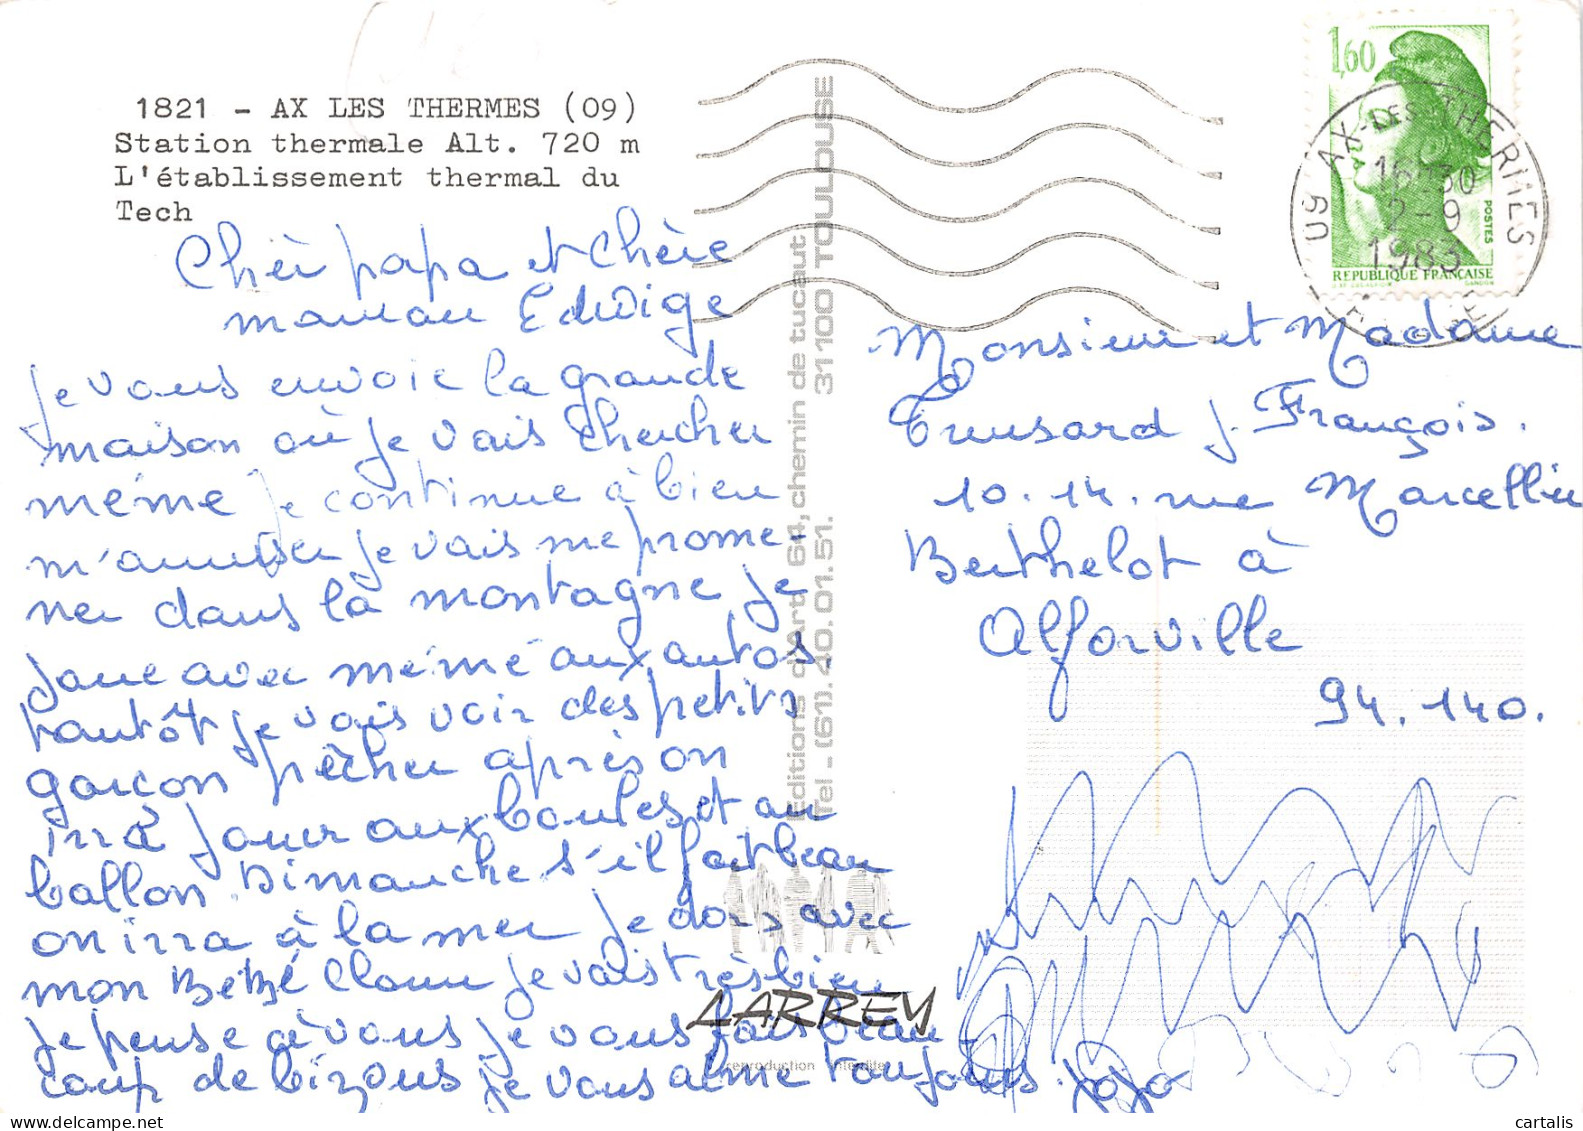 1821 - AX LES THERMES (09)
Station thermale Alt. 720 m
L'établissement thermal du
Tech
Chèr papa et Chère
maman Edwige
je vous envoie la grande
maison où je vais chercher
mémé je continue à bien
m'amuser je vais me prome-
ner dans la montagne je
joue avec mémé aux autos,
tantôt je vais voir des petits
garçon pêcher après on
irra jouer aux boules et au
ballon. Dimanche s'il fait beau
on irra à la mer je dors avec
mon Bébé Clown je vais très bien
je pense à vous je vous fais beau
coup de bizous je vous aime toujours. jojo
Editions d'Art 64, chemin de tucaut
Tel - (61). 40.01.51. 31100 TOULOUSE
LARREY
reproduction interdite
1,60
POSTES
REPUBLIQUE FRANÇAISE
GANDON
09 AX-LES-THERMES
16H30
2-9
1983
ARIEGE
Monsieur et Madame
J. François.
10.14. rue Marcellin
Berthelot à
Alforville
94.140.
cartalis
www.delcampe.net